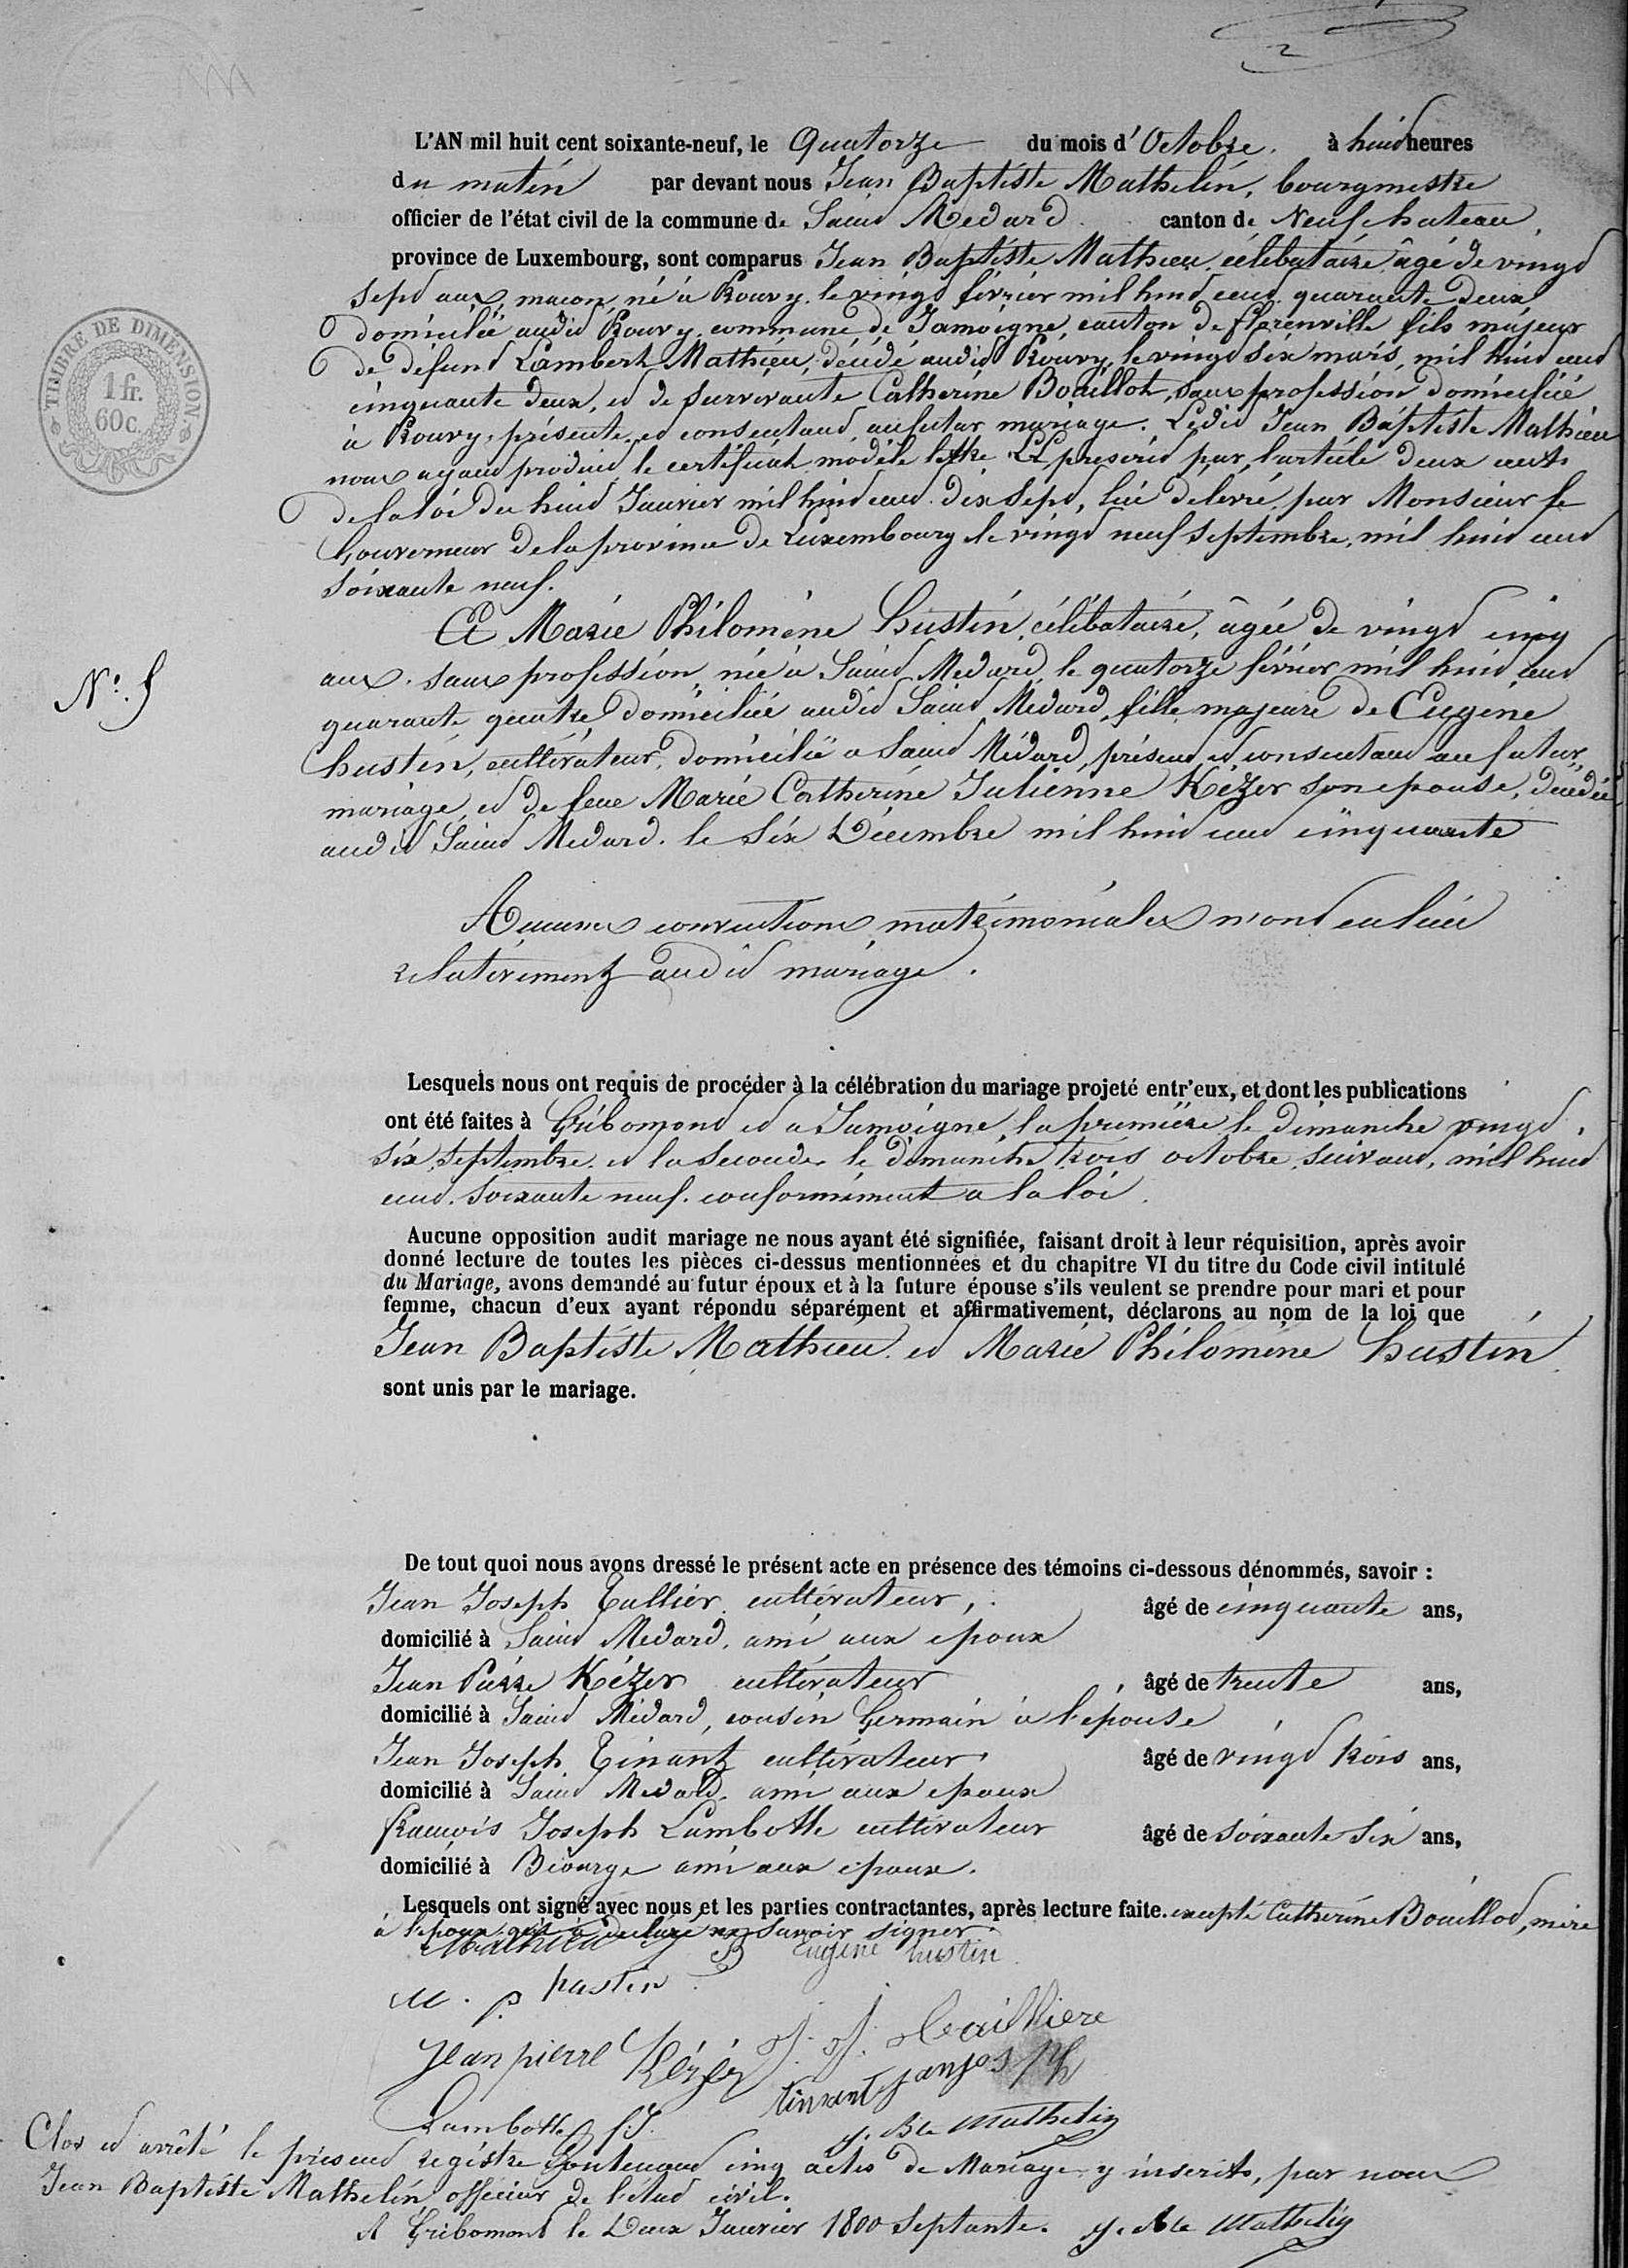 2
L'AN mil huit cent soixante-neuf, le Quatorze du mois d'Octobre. à huit heures
du matin par devant nous Jean Baptiste Mathelin, bourgmestre
officier de l'état civil de la commune de Saint Medard canton de Neufchateau,
province de Luxembourg, sont comparus Jean Baptiste Mathieu célibataire âgé de vingt
sept ans, macon, né à Rouvy le vingt février mil huit cent quarante deux
domicilié audit Rouvy, commune de Jamoigne, canton de florenville fils majeur
de défunt Lambert Mathieu, décédé audit Rouvy, le vingt six mars, mil huit cent
cinquante deux, et de survivante Catherine Bouillot, sans profession domiciliée
à Rouvy, présente et consentant au futur mariage. Ledit Jean Baptiste Mathieu
nous ayant produit le certificat modèle lettre LL prescrit par l'article deux cent
de la loi du huit Janvier mil huit cent dix sept, lui délivré par Monsieur le
Gouverneur de la province de Luxembourg le vingt neuf septembre, mil huit cent
soixante neuf.
Et Marie Philomène hustin, célibataire, âgée de vingt cinq
ans. sans profession, née à Saint Medard, le quatorze février mil huit cent
quarante quatre, domiciliée audit Saint Médard, fille majeure de Eugène
hustin, cultivateur, domicilié a Saint Médard, présent et consentant au futur
mariage et de feue Marie Catherine Julienne Kézer son epouse, décédée
audit Saint Medard. le six Décembre mil huit cent cinquante
N°. 5
TIMBRE DE DIMENSION
1 fr.
60 c.
Aucunes conventions matrimoniales n'ont eu lieu
relativement audit mariage.
Lesquels nous ont requis de procéder à la célébration du mariage projeté entr'eux, et dont les publications
ont été faites à Gribomont et a Jamoigne, la première le dimanche vingt
six septembre. et la seconde le dimanche trois octobre suivant, mil huit
cent. soixante neuf. conformément a la loi.
Aucune opposition audit mariage ne nous ayant été signifiée, faisant droit à leur réquisition, après avoir
donné lecture de toutes les pièces ci-dessus mentionnées et du chapitre VI du titre du Code civil intitulé
du Mariage, avons demandé au futur époux et à la future épouse s'ils veulent se prendre pour mari et pour
femme, chacun d'eux ayant répondu séparément et affirmativement, déclarons au nom de la loi que
Jean Baptiste Mathieu et Marie Philomène hustin
sont unis par le mariage.
De tout quoi nous avons dressé le présent acte en présence des témoins ci-dessous dénommés, savoir :
Jean Joseph Tallier cultivateur, âgé de cinquante ans,
domicilié à Saint Medard, ami aux epoux
Jean Pierre Kézer cultivateur âgé de trente ans,
domicilié à Saint Médard, cousin Germain à l'épouse
Jean Joseph Tinant cultivateur âgé de vingt trois ans,
domicilié à Saint Medard, ami aux epoux
françois Joseph Lambotte cultivateur âgé de soixante six ans,
domicilié à Biourge ami aux epoux.
Lesquels ont signé avec nous et les parties contractantes, après lecture faite. excepté Catherine Bouillot, mère
à l'époux qui a déclaré ne savoir signer.
Mathieu J B Eugène hustin
M. P hustin
Jean pierre Kézer J. J. Taillière
tinant janjosph
Lambotte f. J. J. Bte Mathelin
Clos et arrêté le présent registre Contenant cinq actes de Mariage y inscrits, par nous
Jean Baptiste Mathelin, officier de l'état civil.
A Gribomont le Deux Janvier 1800 septante. J. Bte Mathelin